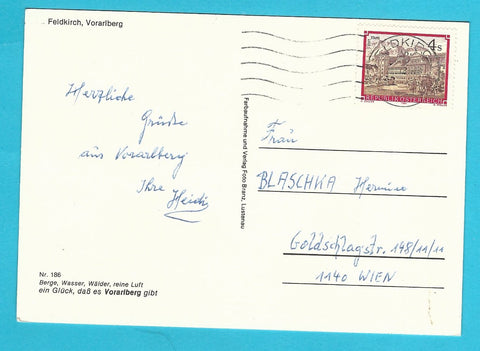 Feldkirch, Vorarlberg
4 S
REPUBLIK ÖSTERREICH
Herzliche
Grüße
aus Vorarlberg
Ihre Heidi
Farbaufnahme und Verlag Foto Branz, Lustenau
Frau
BLASCHKA Hermine
Goldschlagstr. 148/11/11
1140 WIEN
Nr. 186
Berge, Wasser, Wälder, reine Luft
ein Glück, daß es Vorarlberg gibt